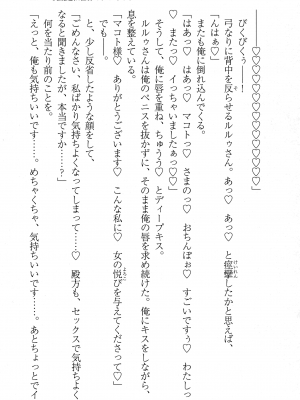 ――――――♡♡♡♡♡♡♡♡♡♡♡♡♡♡♡♡♡♡♡♡
びくびくぅ――!
弓なりに背中を反らせるルルゥさん。あっ♡　あっ♡　と痙攣したかと思えば、
「んはぁ♡」
またも俺に倒れ込んでくる。
「はあっ♡　はあっ♡　マコトっ♡　さまのっ♡　おちんぽぉ♡　すごいですぅ♡　わたしっ
♡　またっ♡　イっちゃいましたぁっ♡♡」
そうして、俺に唇を重ね、ちゅうっ♡　とディープキス。
ルルゥさんは俺のペニスを抜かずに、そのまま俺の唇を求め続けた。俺にキスをしながら、
息を整えている。
「マコト様♡　ありがとうございます♡　こんな私に♡　女の悦びを与えてくださって♡」
でも――
と、少し反省したような顔をして、
「ごめんなさい、私ばかり気持ちよくなってしまって……♡　殿方も、セックスで気持ちよく
なると聞きましたが、本当ですか……?」
何を当たり前のことを。
「えっと、俺も気持ちいいです……。めちゃくちゃ、気持ちいいです……。あとちょっとでイ